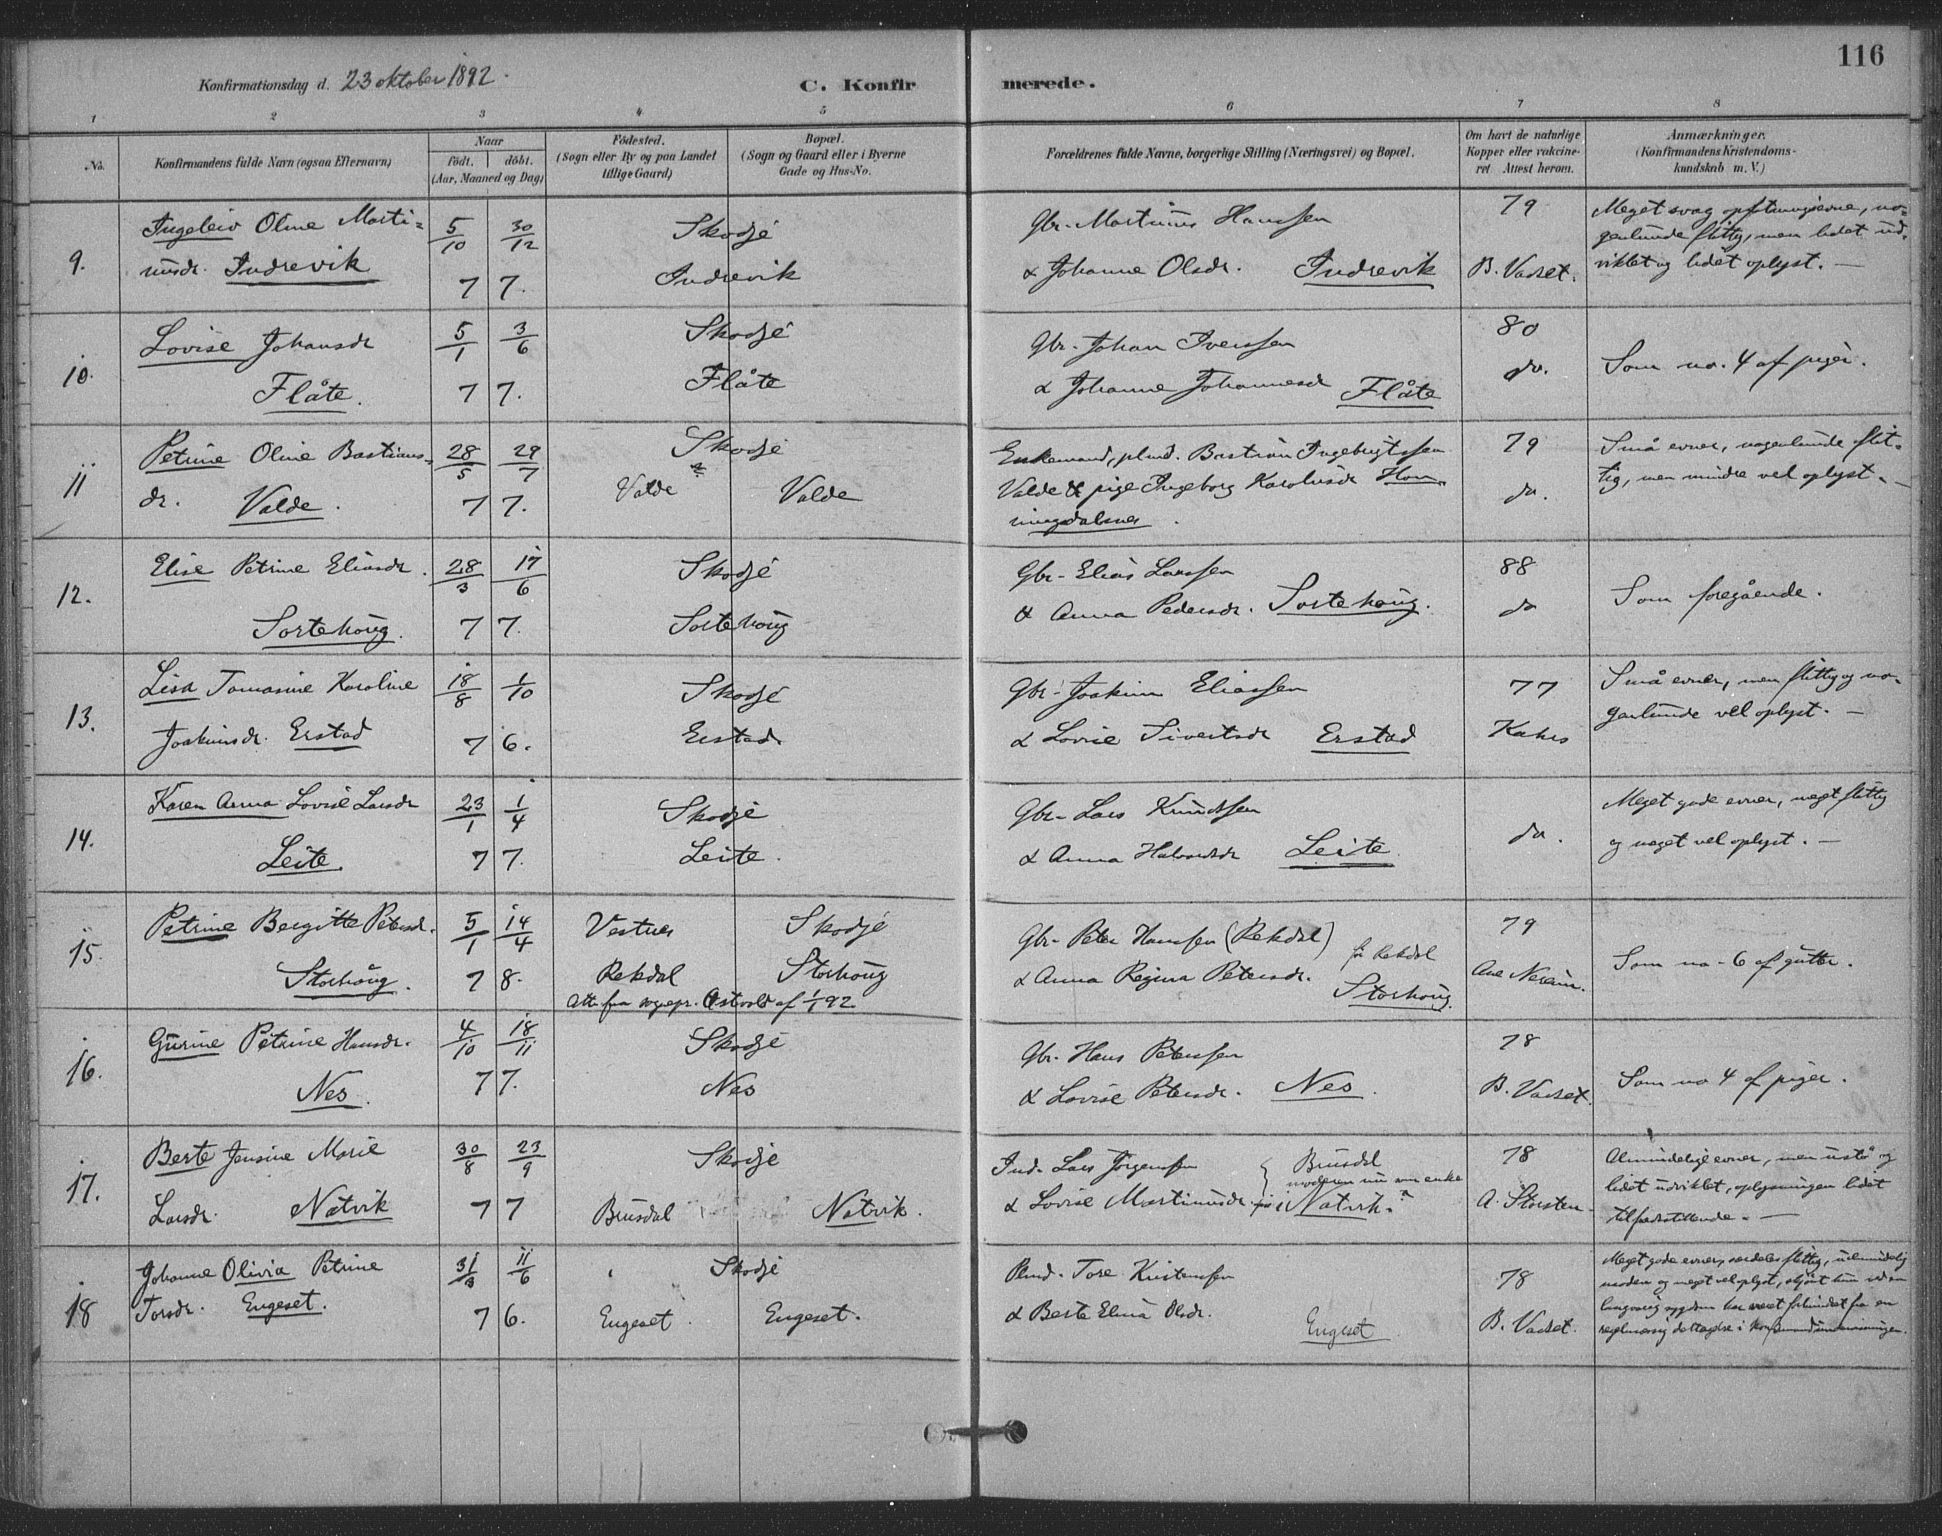 116
Konfirmationsdag d. 23 oktober 1892.
C. Konfir merede.
1 2 3 4 5 6 7 8
No.
Konfirmandens fulde Navn (ogsaa Efternavn)
Naar
födt. döbt.
(Aar, Maaned og Dag)
Födested.
(Sogn eller By og paa Landet
tillige Gaard)
Bopæl.
(Sogn og Gaard eller i Byerne
Gade og Hus-No.
Forældrenes fulde Navne, borgerlige Stilling (Næringsvei) og Bopæl.
Om havt de naturlige
Kopper eller vakcine-
ret Attest herom.
Anmærkninger.
(Konfirmandens Kristendoms-
kundskab m. V.)
9. Ingeleiv Oline Marti= 5/10 30/12 Skodje Gbr. Martinus Hanssen 79 Meget svag opfatningsevne, no=
genlunde flittig, men lidet ud-
nusdr. Indrevik 7 7. Indrevik & Johanne Olsdr. Indrevik B. Vadset. viklet og lidet oplyst. —
10. Lovise Johansdr 5/1 3/6 Skodje Gbr. Johan Iverssen 80
Flåte. 7 7. Flåte & Johanne Johannesdr Flåte do. Som no. 4 af piger.
11 Petrine Oline Bastians= 28/5 29/7 Skodje Enkemand, plmd. Bastian Ingebrigtssen 79 Små evner, nogenlunde flit-
dr. Valde. 7 7. Valde Valde Valde & pige Ingeborg Karolusdr Hon= do. tig, men mindre vel oplyst. —
ningsdalsnes.
12. Elise Petrine Eliasdr. 28/3 17/6 Skodje Gbr. Elias Larssen 88
Sortehoug. 7 7. Sortehoug & Anna Pedersdr. Sortehoug. do Som foregående.
13. Lisa Tomasine Karoline 18/8 1/10 Skodje Gbr. Joakim Eliassen 77 Små evner, men flittig og no-
Joakimsdr. Erstad 7 6. Erstad & Lovise Sivertsdr Erstad Kahrs genlunde vel oplyst. —
14. Karen Anna Lovise Larsdr 23/1 1/4 Skodje Gbr. Lars Knudssen do. Meget gode evner, meget flittig
Leite. 7 7. Leite. & Anna Halvardsdr Leite og meget vel oplyst. —
15. Petrine Bergitte Petersdr. 5/1 14/4 Vestnes Skodje Gbr. Peter Hanssen (Rekdal) 79
Storhoug. 7 8. Rekdal Storhoug & Anna Regina Petersdr. på Rekdal Storhoug. Ane Nerem. Som no. 6 af gutter.
Att. fra sognepr. Astvold af 1/1 92
16. Gurine Petrine Hansdr. 4/10 18/11 Skodje Gbr. Hans Peterssen 78
Nes. 7 7. Nes & Lovise Petersdr. Nes. B. Vadset. Som no 4 af piger.
17. Berte Jensine Marie 30/8 23/9 Skodje Ind. Lars Jörgenssen Brusdal 78 Almindelige evner, men ustø og
moderen nu som enke lidet udviklet, oplysningen lidet
Larsdr. Natvik 7 7 Brusdal Natvik. & Lovise Martinusdr på Natvik. A. Storsten. tilfredsstillende. —
18 Johanne Olivia Petrine 31/3 11/6 Skodje Plmd. Tore Kristenssen 78 Meget gode evner, særdeles flittig, ualmindelig
moden og meget vel oplyst, skjönt hun ved en
Torsdr. Engeset. 7 6. Engeset Engeset. & Berte Elina Olsdr. Engeset B. Vadset. langvarig sygdom har været forhindret fra en
regelmæssig deltagelse i konfirmandundervisningen.